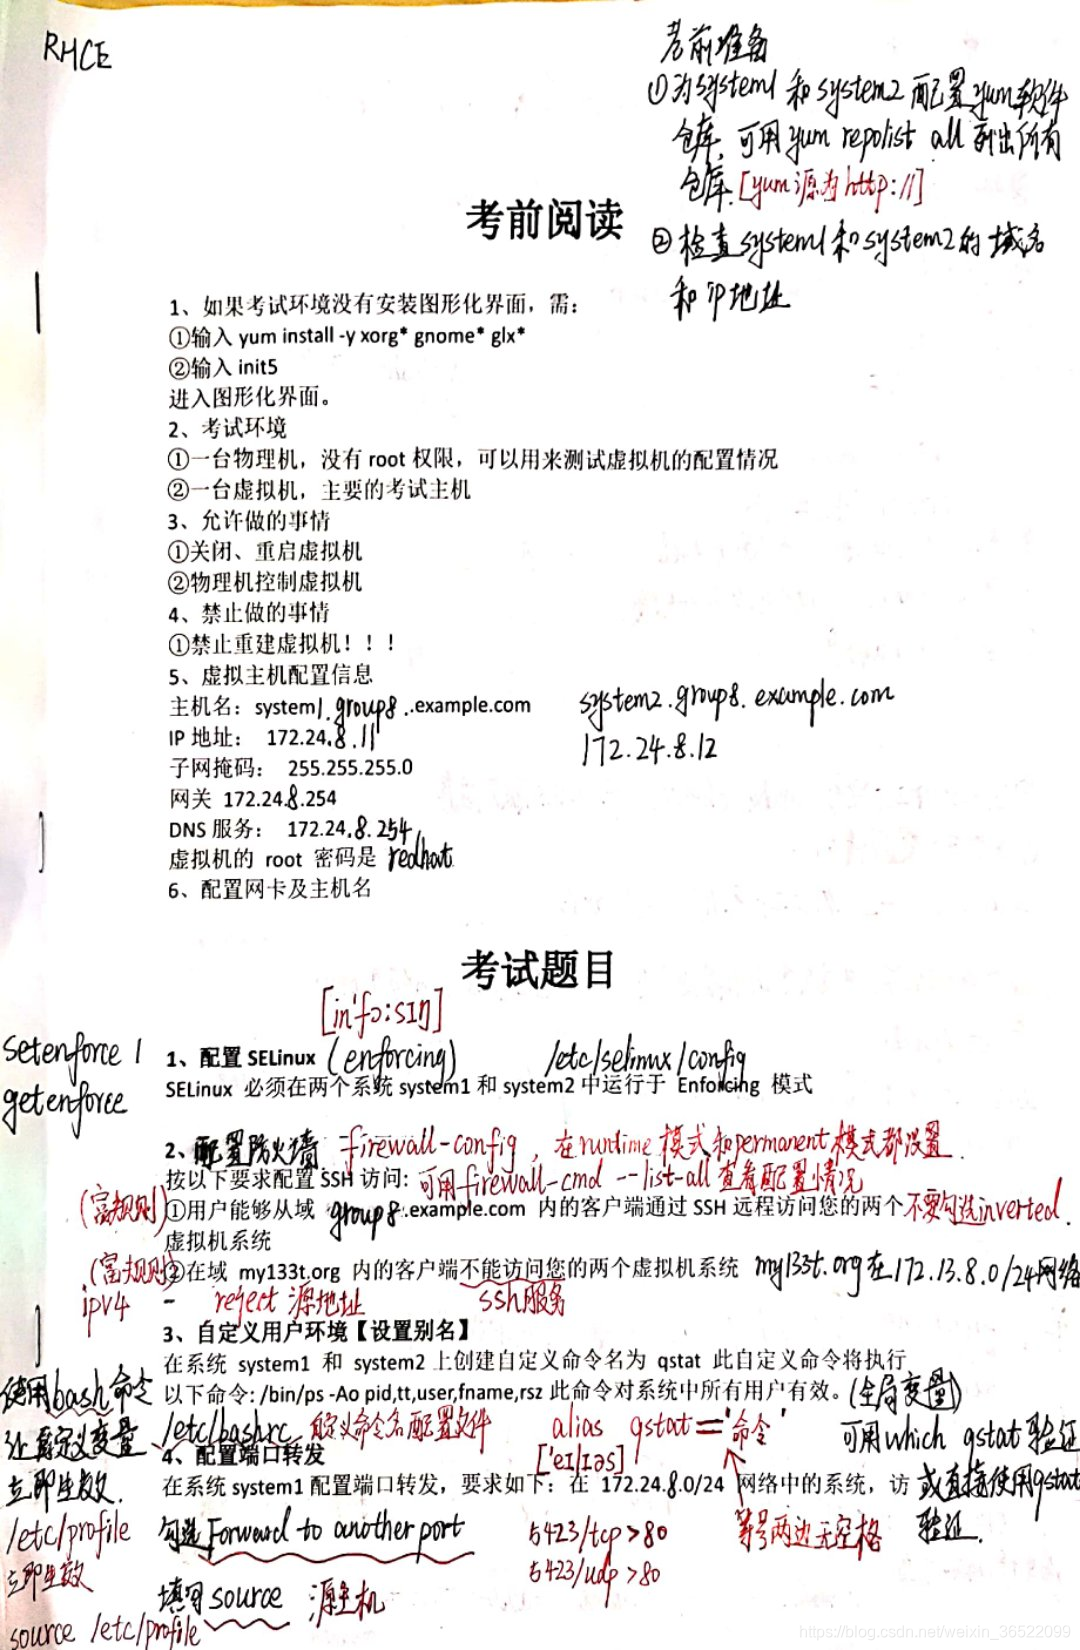 RHCE
考前准备
①为system1 和 system2 配置yum软件
仓库,可用yum repolist all 列出所有
仓库.[yum源为http://]
②检查system1和system2的域名
和ip地址
考前阅读
1、如果考试环境没有安装图形化界面，需：
①输入 yum install -y xorg* gnome* glx*
②输入 init5
进入图形化界面。
2、考试环境
①一台物理机，没有 root 权限，可以用来测试虚拟机的配置情况
②一台虚拟机，主要的考试主机
3、允许做的事情
①关闭、重启虚拟机
②物理机控制虚拟机
4、禁止做的事情
①禁止重建虚拟机！！！
5、虚拟主机配置信息
主机名：system1.group8..example.com system2.group8.example.com
IP 地址： 172.24.8.11 172.24.8.12
子网掩码： 255.255.255.0
网关 172.24.8.254
DNS 服务： 172.24.8.254
虚拟机的 root 密码是 redhat
6、配置网卡及主机名
考试题目
[in'fɔ:sɪŋ]
setenforce 1
getenforce
1、配置 SELinux (enforcing) /etc/selinux/config
SELinux 必须在两个系统 system1 和 system2 中运行于 Enforcing 模式
2、配置防火墙 firewall-config，在runtime模式和permanent模式都设置.
按以下要求配置 SSH 访问: 可用firewall-cmd --list-all查看配置情况
(富规则)①用户能够从域 group8.example.com 内的客户端通过 SSH 远程访问您的两个 不要勾选inverted.
虚拟机系统
(富规则)②在域 my133t.org 内的客户端不能访问您的两个虚拟机系统 my133t.org在172.13.8.0/24网络
ipv4 - reject 源地址 ssh服务
3、自定义用户环境【设置别名】
在系统 system1 和 system2 上创建自定义命令名为 qstat 此自定义命令将执行
以下命令: /bin/ps -Ao pid,tt,user,fname,rsz 此命令对系统中所有用户有效。(全局变量)
使用bash命令
让自定义变量
立即生效.
/etc/bashrc 自定义命令名配置文件 alias qstat='命令'
['eɪlɪəs]
等号两边无空格
可用which qstat验证
或直接使用qstat
验证.
4、配置端口转发
在系统 system1 配置端口转发，要求如下：在 172.24.8.0/24 网络中的系统，访
/etc/profile
立即生效
source /etc/profile
勾选Forward to another port 5423/tcp >80
5423/udp >80
填写source 源主机
https://blog.csdn.net/weixin_36522099